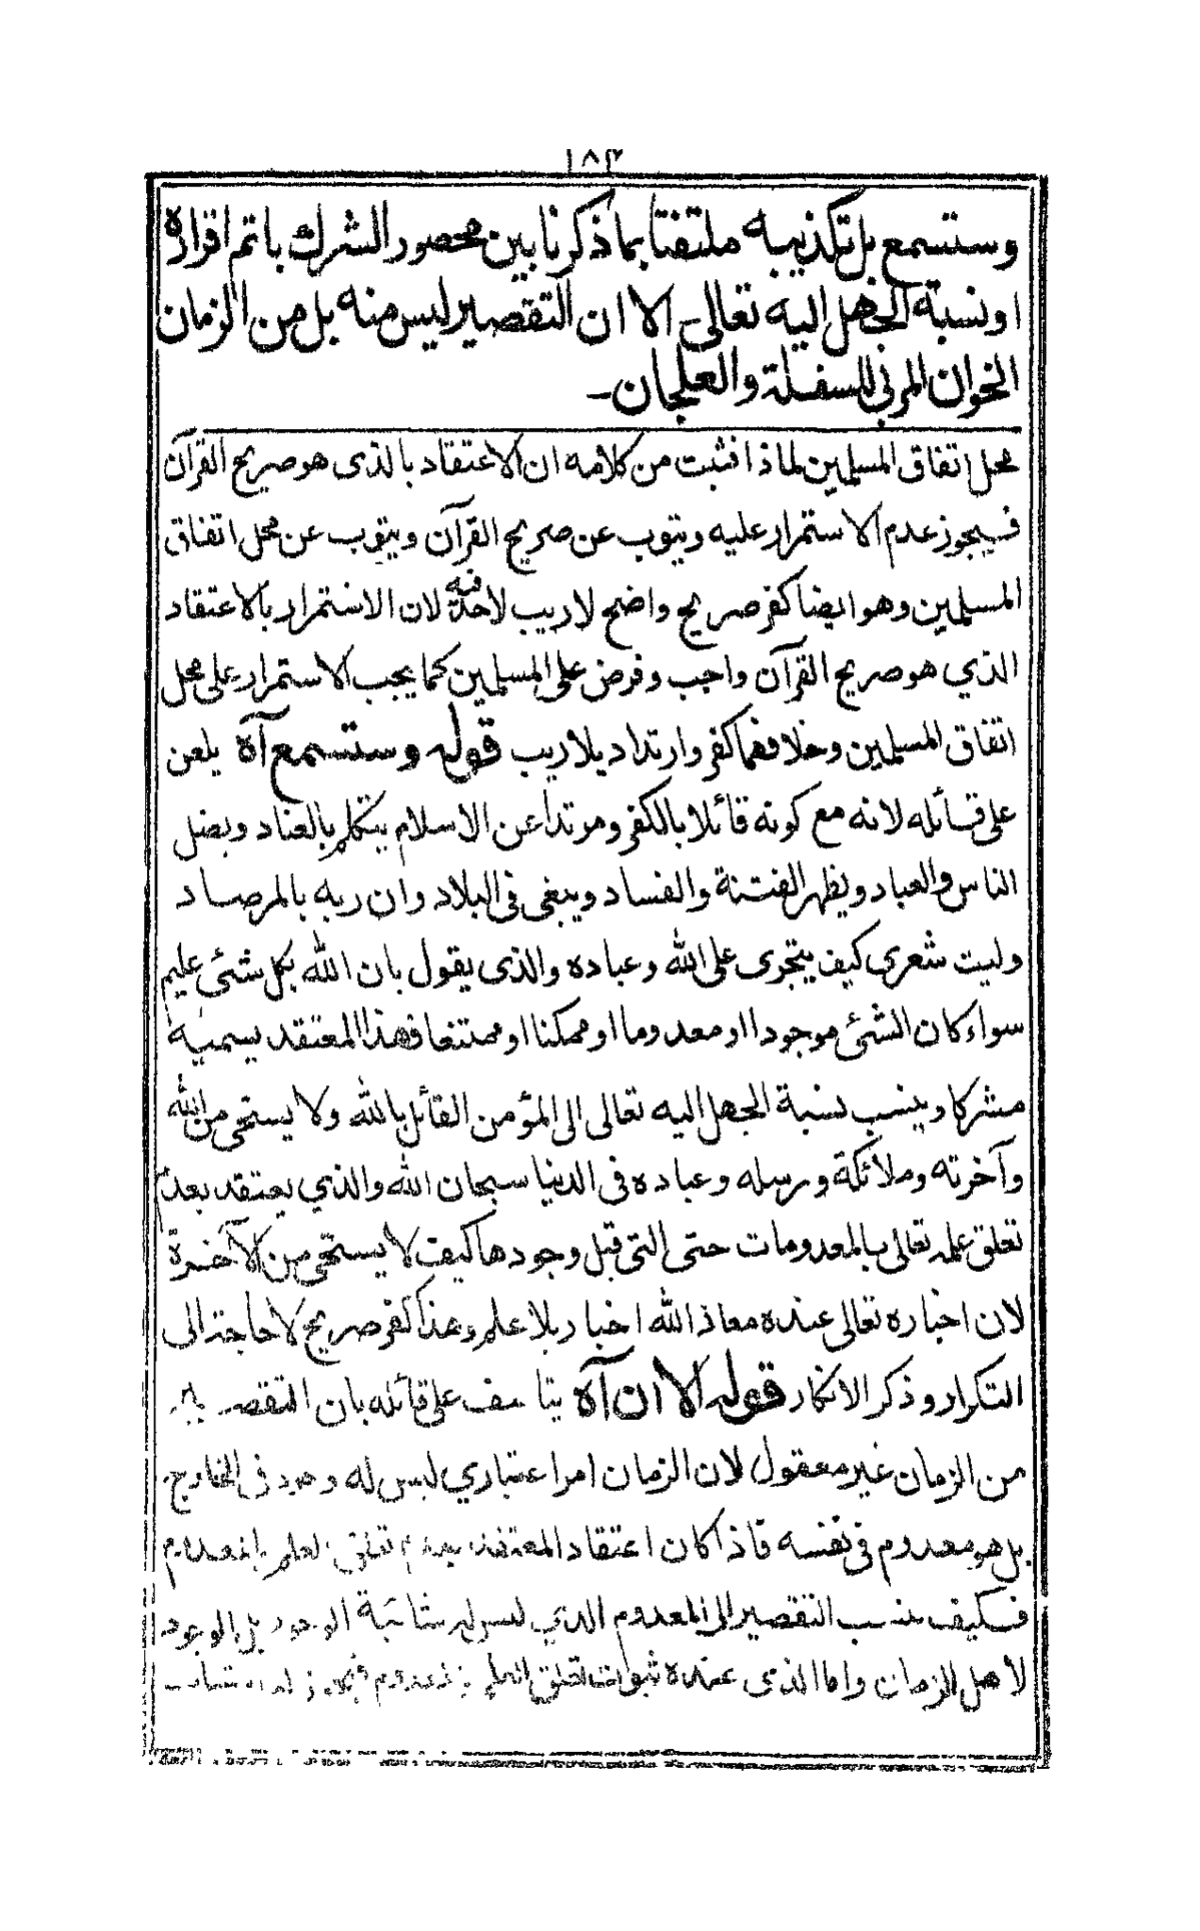 ١٨٢
وستسمع بل تكذيبه ملتفتا بما ذكرنا بين محصور الشرك باتم اقراره
اونسبة الجهل اليه تعالى الا ان التقصير ليس منه بل من الزمان
الخوان المربي للسفلة والعلجان ـ
محل اتفاق المسلمين لماذا فثبت من كلامه ان الاعتقاد بالذى هو صريح القرآن
فيجوز عدم الاستمرار عليه ويتوب عن صريح القرآن ويتوب عن محل اتفاق
المسلمين وهو ايضا كفر صريح واضح لا ريب لاحد فيه لان الاستمرار بالاعتقاد
الذي هو صريح القرآن واجب وفرض على المسلمين كما يجب الاستمرار على محل
اتفاق المسلمين وخلافهما كفر وارتداد بلا ريب قوله وستسمع آه يلعن
على قائله لانه مع كونه قائلا بالكفر ومرتدا عن الاسلام يتكلم بالعناد ويضل
الناس والعباد ويظهر الفتنة والفساد ويبغى فى البلاد وان ربه بالمرصاد
وليت شعري كيف يتجرى على الله وعباده والذى يقول بان الله بكل شئى عليم
سواء كان الشئى موجودا او معدوما او ممكنا او ممتنعا فهذا المعتقد يسميه
مشركا وينسب نسبة الجهل اليه تعالى الى المؤمن القائل بالله ولا يستحى من الله
وآخرته وملائكة ورسله وعباده فى الدنيا سبحان الله والذي يعتقد بعدم
تعلق علمه تعالى بالمعدومات حتى التى قبل وجودها كيف لا يستحى من الآخرة
لان اخباره تعالى عنده معاذ الله اخبار بلا علم وهذا كفر صريح لا حاجة الى
التكرار وذكر الانكار قوله الا ان آه يتاسف على قائله بان التقصير
من الزمان غير معقول لان الزمان امر اعتباري ليس له وجود فى الخارج
بل هو معدوم فى نفسه فاذا كان اعتقاد المعتقد بعدم تعلق العلم بالمعدوم
فكيف ينسب التقصير الى المعدوم الذي ليس له شائبة الوجود بل الوجود
لاهل الزمان واما الذى عنده ثبوت تعلق العلم